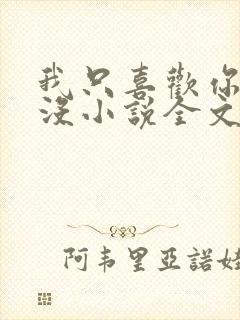 我只喜歡你
沒小說全文
阿韦里亞諾娃